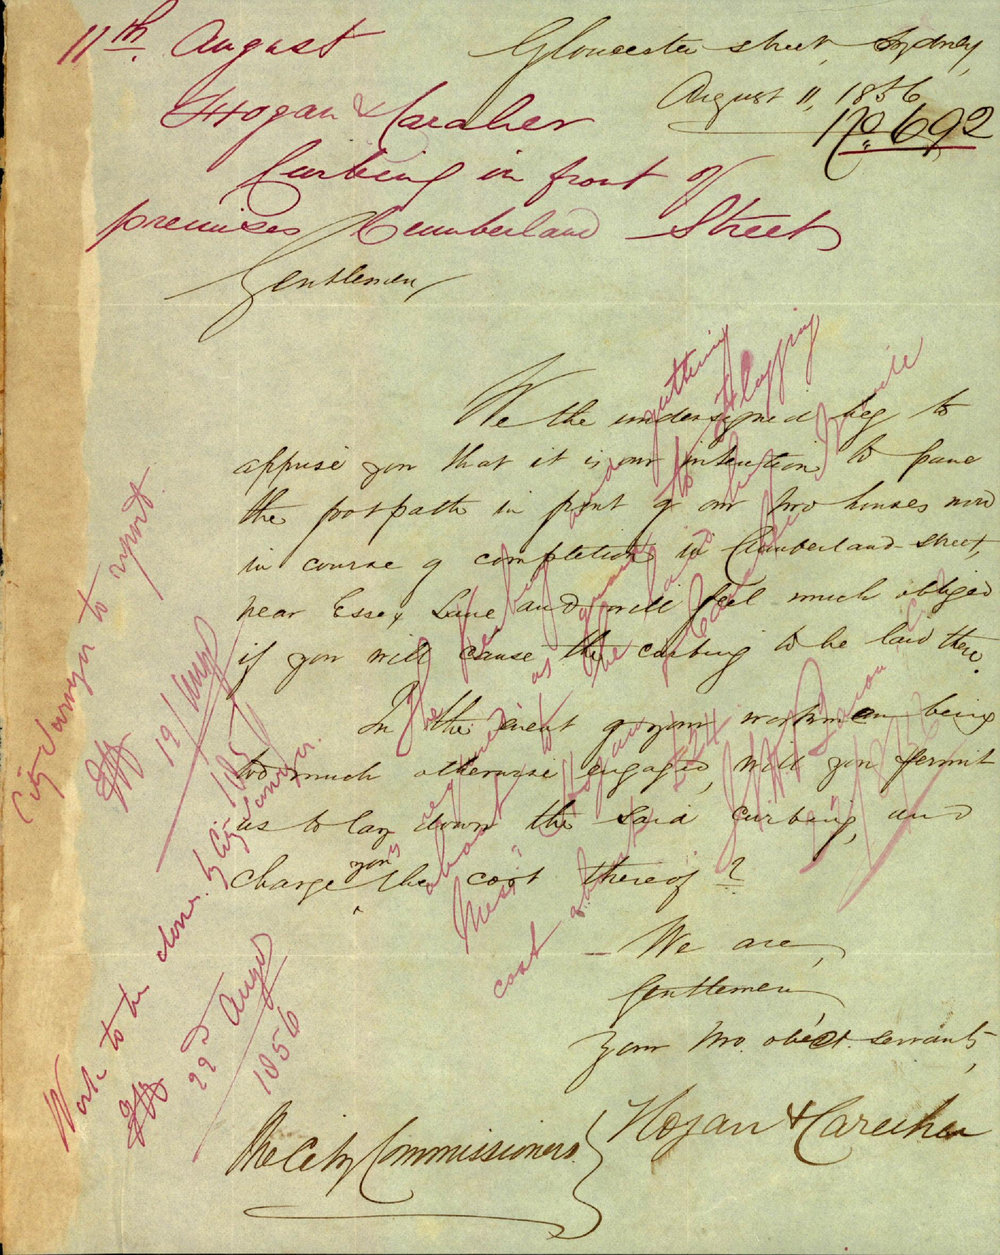 11th August
Hogan & Caraher
Curbing in front of
premises Cumberland Street
Gloucester street, Sydney,
August 11, 1856
No 692
Gentlemen,
We the undersigned beg to
apprise you that it is our intention to pave
the footpath in front of our two houses now
in course of completion in Cumberland-street,
near Essex Lane and will feel much obliged
if you will cause the curbing to be laid there.
In the event of your workmen being
too much otherwise engaged, will you permit
us to lay down the said curbing, and
charge you the cost thereof?
We are,
Gentlemen
Your mo. obedt. servants,
Hogan & Caraher
The City Commissioners
City Surveyor to report.
19/Augt
1856
Work to be done by City Surveyor.
22d Augt
1856
The Kerbing and guttring
as
required
to the flagging
about to be laid by
Messrs Hogan & Caraher
cost about £24